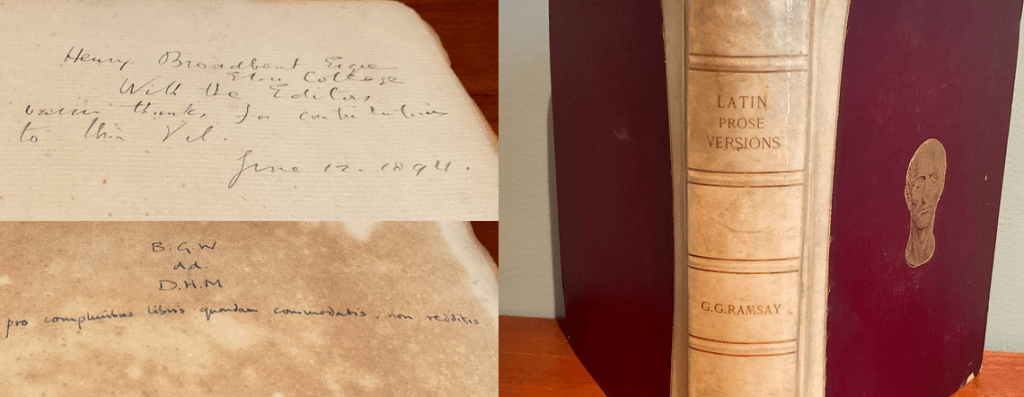 Henry Broadbent Esqre
Eton College
With the Editors
warm thanks for contributions
to this Vol.
June 12. 1894.
B.G.W
d.d.
D.H.M
pro compluribus libris quondam commodatis, non redditis
LATIN
PROSE
VERSIONS
G.G.RAMSAY